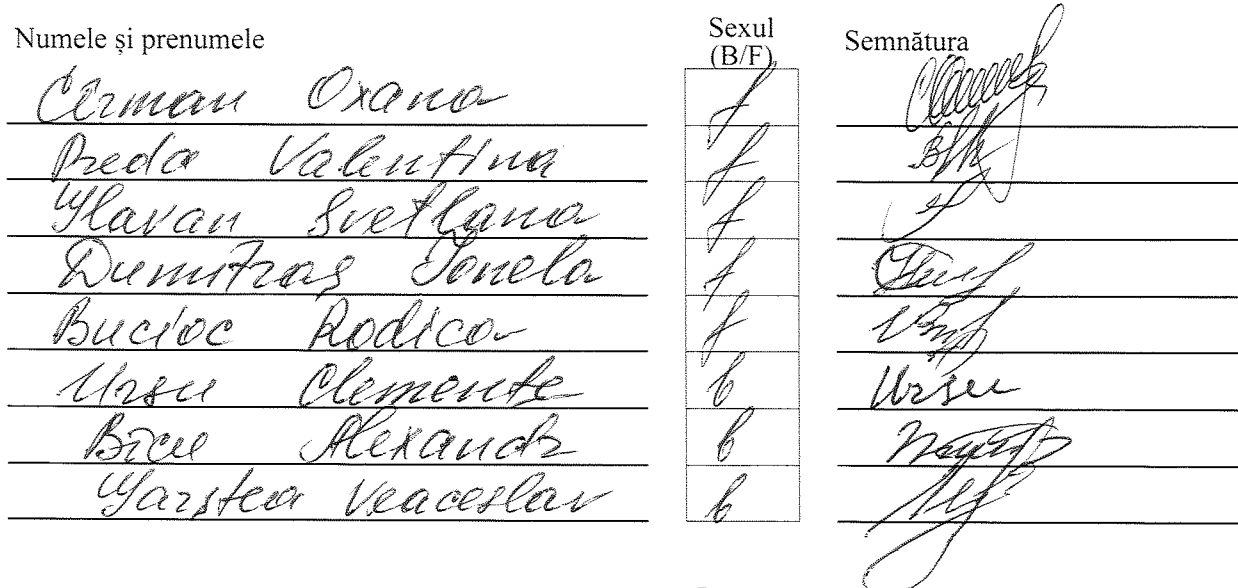 Numele și prenumele Sexul (B/F) Semnătura
Cerman Oxana f
Preda Valentina f
Ciavan Svetlana f
Dumitraș Ionela f
Bucioc Rodica f
Ursu Clemente b Ursu
Bicu Alexandr b
Veaceslav b